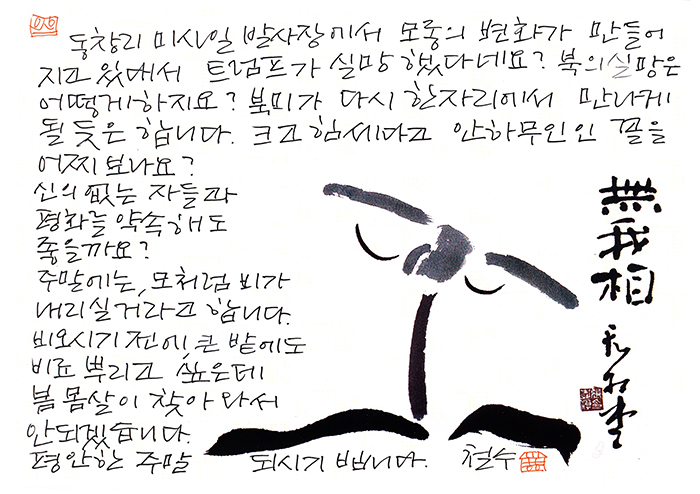 동창리 미사일 발사장에서 모종의 변화가 만들어
지고 있대서 트럼프가 실망했다네요? 북의실망은
어떻게하지요? 북미가 다시 한자리에서 만나게
될 듯은 합니다. 크고 힘세다고 안하무인인 꼴을
어찌보나요?
신의 없는 자들과
평화를 약속해도
좋을까요?
주말에는, 모처럼 비가
내리실거라고 합니다.
비오시기 전에, 큰 밭에도
비료 뿌리고 싶은데
봄 몸살이 찾아와서
안되겠습니다.
평안한 주말 되시기 빕니다. 철수
無我相